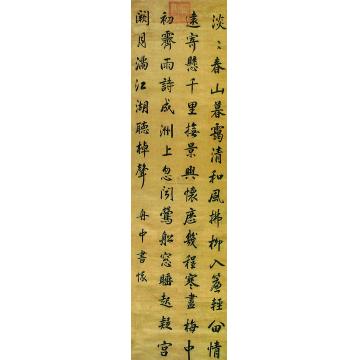 淡〻春山暮靄清和風拂柳入簾輕回情
遠寄懸千里撫景興懷歷幾程寒盡梅中
初霽雨詩成洲上忽聞鶯船窓睡起疑宮
闕月滿江湖聽棹聲 舟中書懷